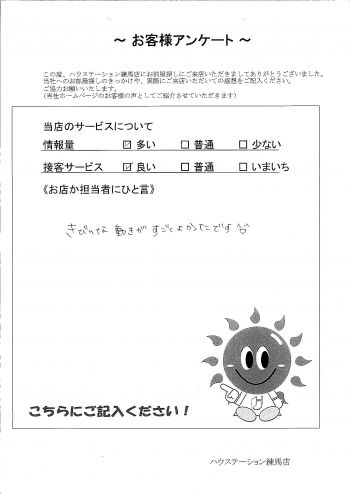 ～ お客様アンケート ～
この度、ハウステーション練馬店にお部屋探しにご来店いただきましてありがとうございました。
当社へのお部屋探しのきっかけや、実際にご来店いただいての感想をご記入ください。
ご協力お願いいたします。
(当社ホームページのお客様の声としてご紹介させていただきます)
当店のサービスについて
情報量 ☑ 多い □ 普通 □ 少ない
接客サービス ☑ 良い □ 普通 □ いまいち
《お店か担当者にひと言》
きびんな 動きが すごくよかったです
こちらにご記入ください！
ハウステーション練馬店